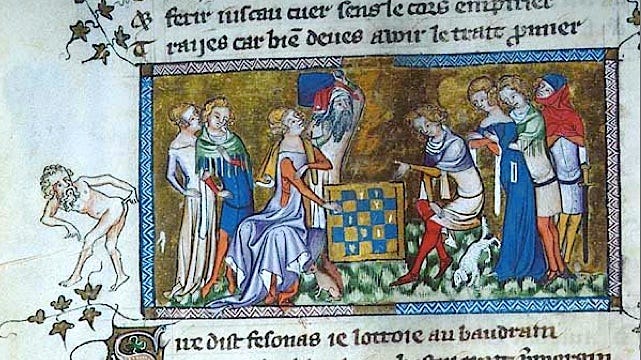 & ferir iuscau cuer sens le cors empirier
T raiies car biē deues auoir le trait pmier
S ire dist fesonas ie lottroie au baudrain